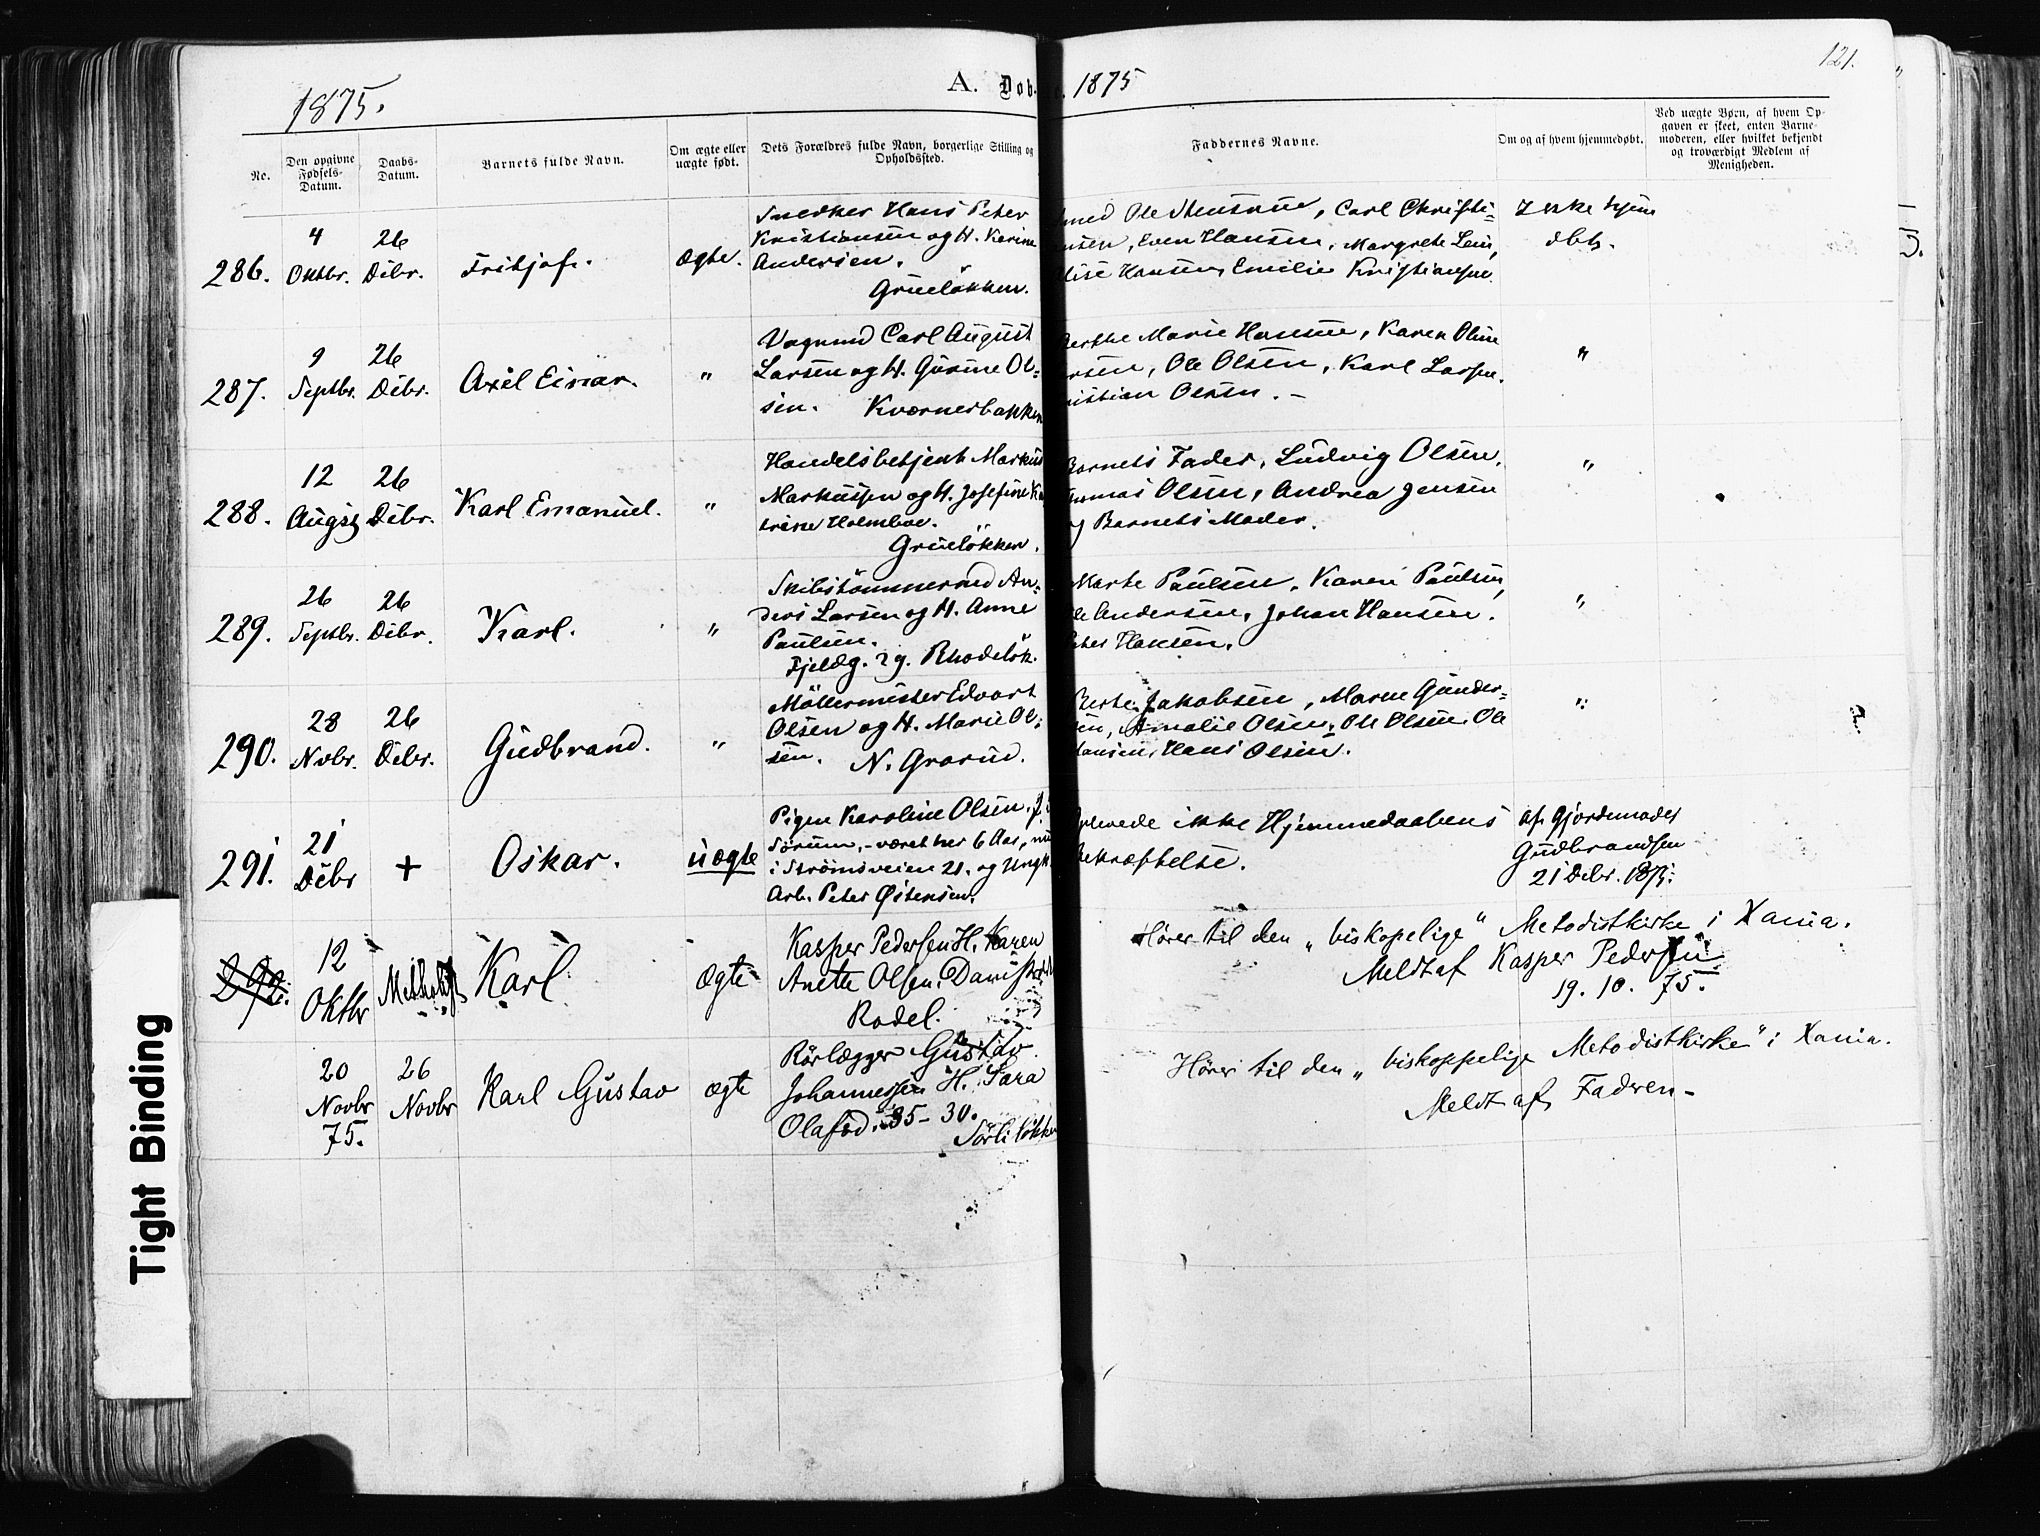 121.
1875.
A. Døb. 1875
No.
Den opgivne Fødsels-Datum.
Daabs-Datum.
Barnets fulde Navn.
Om ægte eller uægte født.
Dets Forældres fulde Navn, borgerlige Stilling og Opholdssted.
Faddernes Navne.
Om og af hvem hjemmedøbt.
Ved uægte Børn, af hvem Opgaven er skeet, enten Barnemoderen, eller hvilket bekjendt og troværdigt Medlem af Menigheden.
286.
4 Oktbr.
26 Debr.
Fritjof.
Ægte.
Snedker Hans Peter
Kristiansen og H. Karine
Andersen.
Grueløkken.
Ole Stensrue, Carl Christi=
ensen, Even Hansen, Margrete Lein,
Elise Hansen, Emilie Kristiansen.
Ikke hjem
dbt.
287.
9 Septbr.
26 Debr.
Axel Einar.
"
Vognmd Carl August
Larsen og H. Gurine Ol=
sen. Kværnerbakken
Berthe Marie Hansen, Karen Oline
Larsen, Ole Olsen, Karl Larsen.
Kristian Olsen. -
"
288.
12 Augst
26 Debr.
Karl Emanuel.
"
Handelsbetjent Markus
Markussen og H. Josefine Ka
trine Holmboe.
Grueløkken.
Barnets Fader, Ludvig Olsen.
Tomas Olsen, Andrea Jensen
og Barnets Moder.
"
289.
26 Septbr.
26 Debr.
Karl.
"
Skibstømmermd An=
ders Larsen og H. Anne
Paulsen.
Fjeldg. 29. Rhodeløk.
Marte Paulsen, Karen Paulsen,
Ole Andersen, Johan Hansen.
Peter Hansen.
"
290.
28 Novbr.
26 Debr.
Gudbrand.
"
Møllermester Edvart
Olsen og H. Marie Ol=
sen. N. Grorud.
Berte Jakobsen, Maren Gunder=
sen, Amalie Olsen, Ole Olsen, Ole
Hansen, Hans Olsen.
"
291.
21 Debr
+
Oskar.
uægte
Pigen Karoline Olsen, f. i
Sørum, - været her 6 Aar, nu
i Strømsveien 21. og Ungk.
Arb. Peter Østensen.
ikke Hjemmedaabens
Bekræftelse.
Af Gjordemoder
Gudbrandsen
21 Debr. 1875.
292.
12 Oktbr
Methodist
Karl
Ægte
Kasper Pedersen H. Karen
Anette Olsen,
Rodel.
Hører til den "biskopelige" Metodistkirke i Xania.
Meldt af Kasper Pedersen
19. 10. 75.
20 Novbr 75.
26 Novbr
Karl Gustav
ægte
Rørlægger Gustav
Johannessen H. Sara
Olafsd. 35 - 30.
Sørli løkken
Hører til den "biskoppelige Metodistkirke" i Xania.
Meldt af Fadren -
Tight Binding